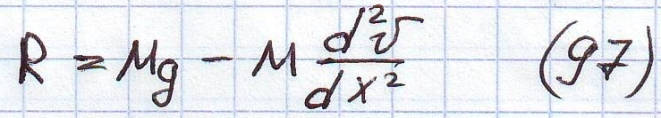 R = Mg - M d²v/dx² (97)